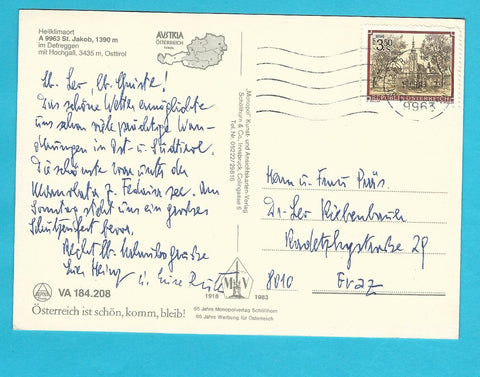 Heilklimaort
A 9963 St. Jakob, 1390 m
im Defreggen
mit Hochgall, 3435 m, Osttirol
AVSTRIA
ÖSTERREICH
3.50
REPUBLIK ÖSTERREICH
9963
Lb. Leo, lb. Christe!
Das schöne Wetter ermöglichte
uns schon viele prächtige Wan-
derungen in Ost- u. Südtirol.
Die schönste war unter der
zum
Am
Sonntag steht uns ein großes
Schützenfest bevor.
Recht lb. Urlaubsgrüße
Euer Heinz u.
Herrn und Frau Präs.
Dr. Leo
Radetzkystraße 29
8010 Graz
"Monopol" Kunst- und Ansichtskarten-Verlag
Schöllhorn & Co., Innsbruck, Colingasse 6
Tel. Nr. 05222/29816
VA 184.208
Österreich ist schön, komm, bleib!
1918 1983
65 Jahre Monopolverlag Schöllhorn
65 Jahre Werbung für Österreich